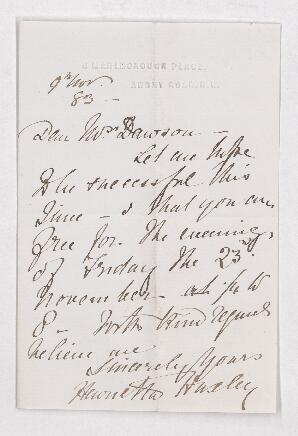 4 MARLBOROUGH PLACE,
ABBEY ROAD, N.W.
9th Nov.
83 —
Dear Mrs Dawson —
Let me hope
to be successful this
time — & that you are
free for the evening
of Friday the 23rd
November — at
8 — With kind regards
believe me
Sincerely yours
Henrietta Huxley